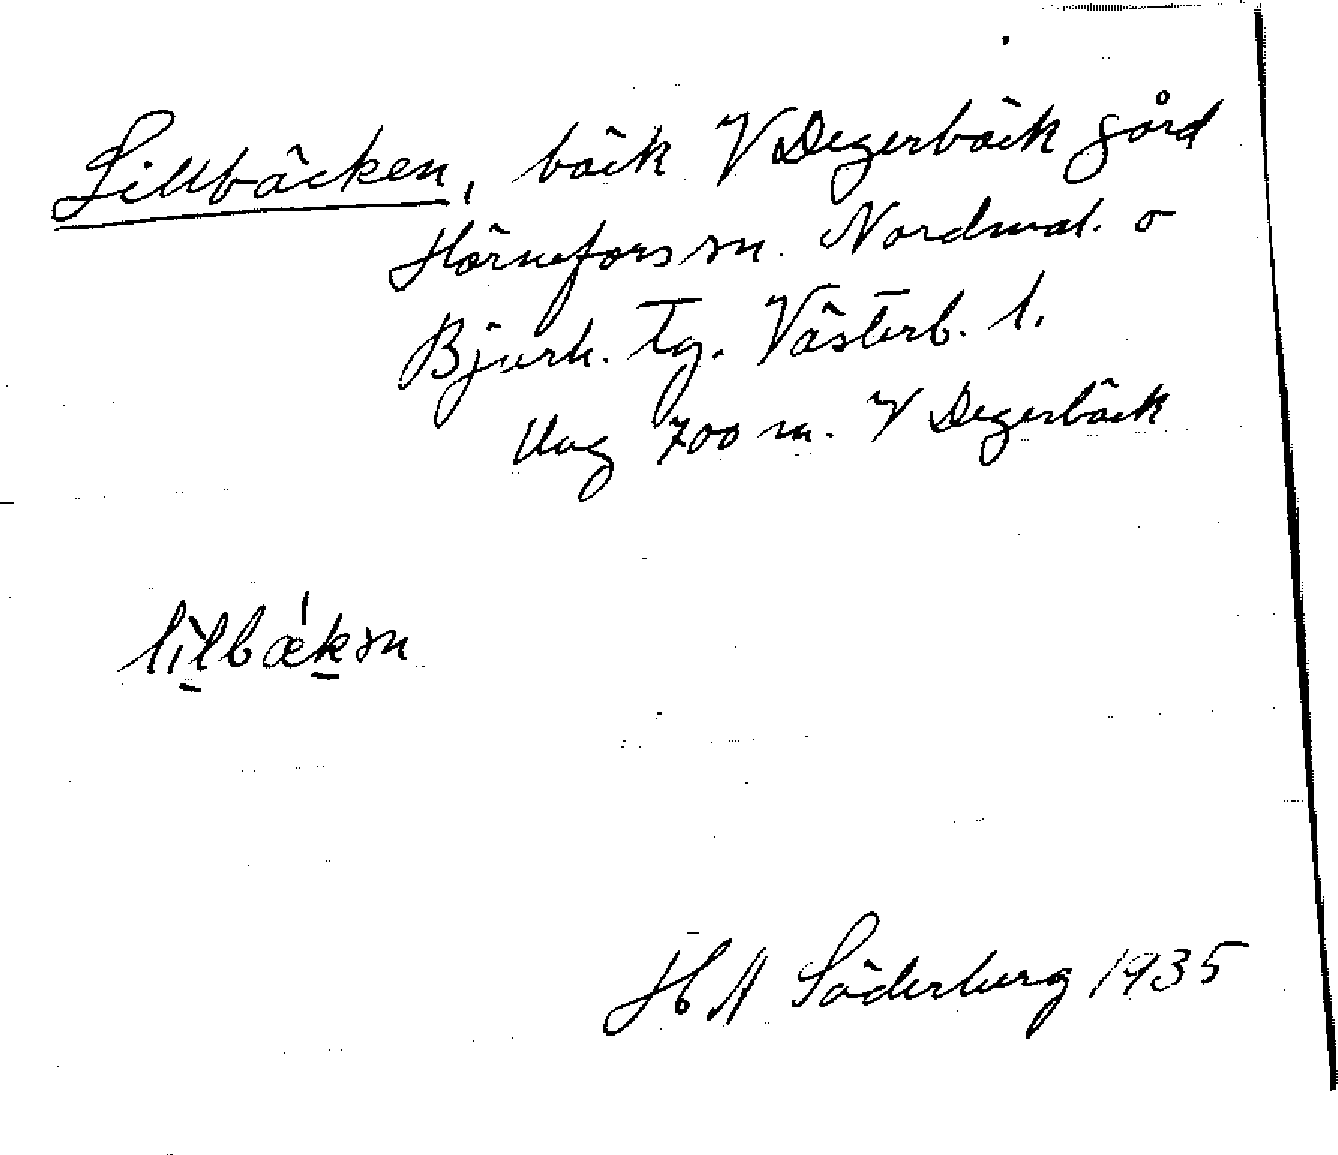 Lillbäcken, bäck V Degerbäck gård
Hörnefors sn. Nordmal. o
Bjurh. Tg. Västerb. l.
Ung 700 m. V Degerbäck
H A Söderberg 1935